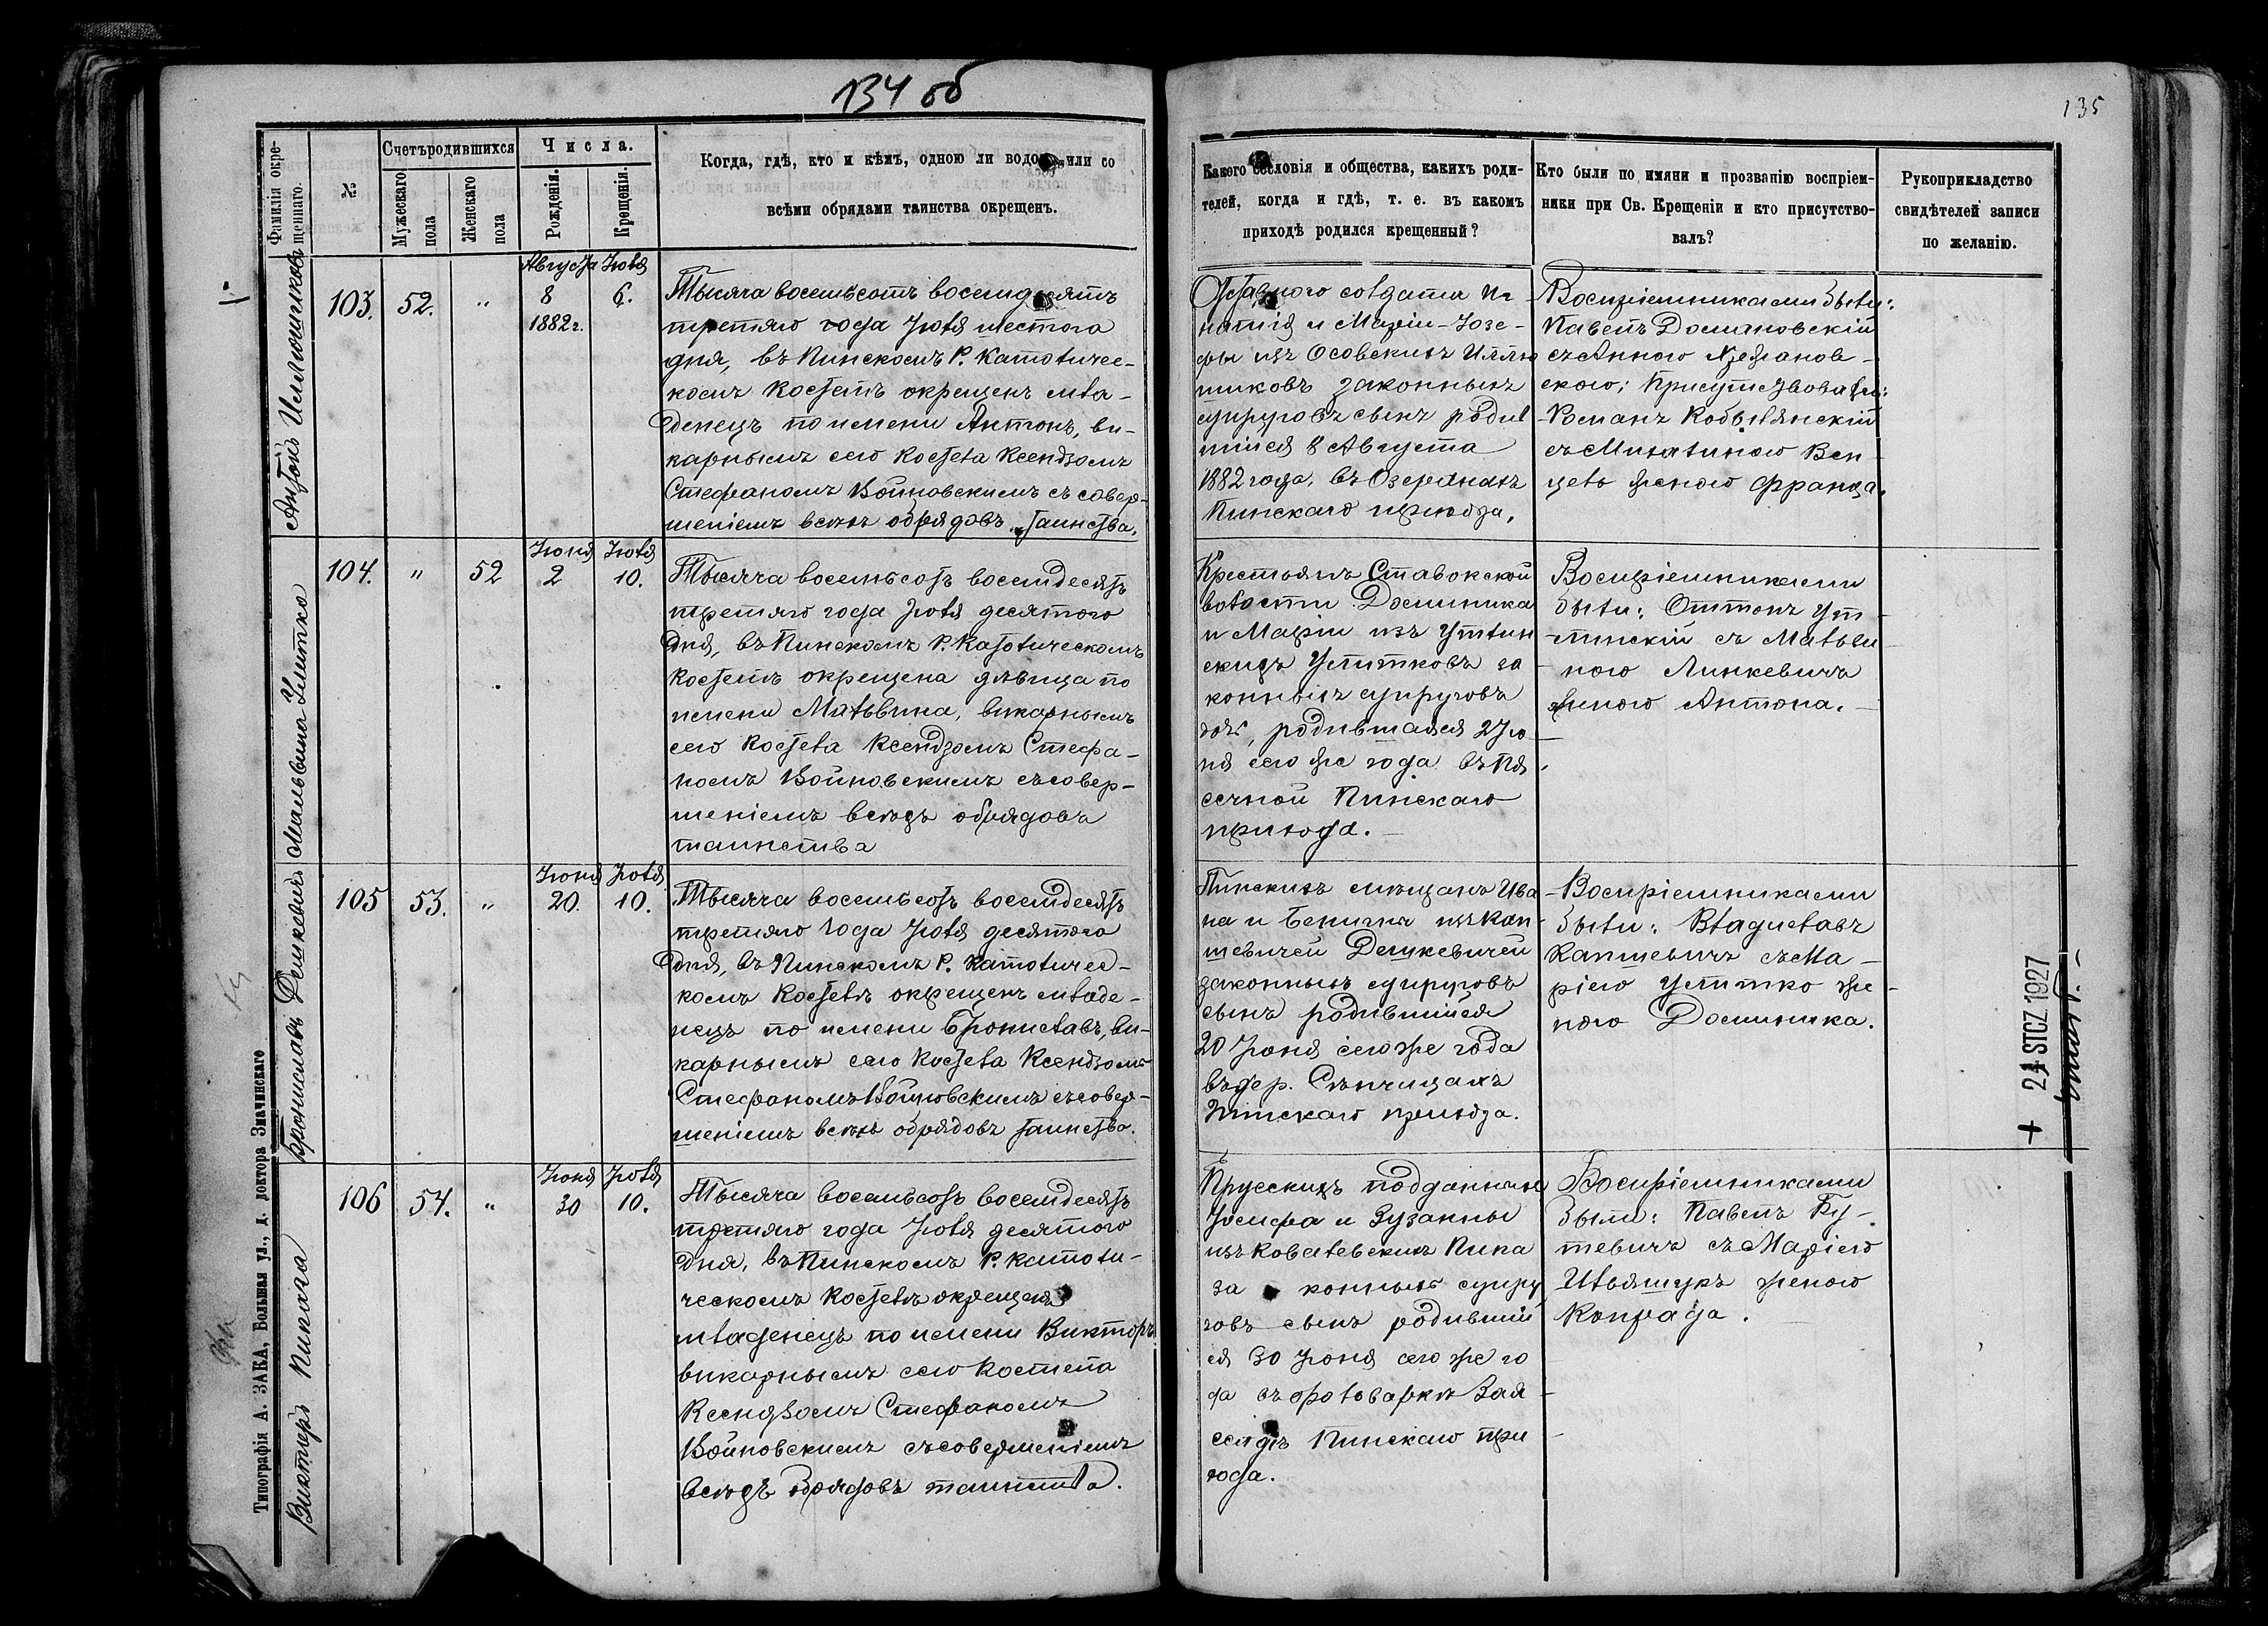 134 об
135
Фамилія окрещеннаго.
№
Счетъ родившихся
Мужескаго пола
Женскаго пола
Числа.
Рожденія.
Крещенія.
Когда, гдѣ, кто и кѣмъ, одною ли водою или со
всѣми обрядами таинства окрещенъ.
Какого сословія и общества, какихъ роди-
телей, когда и гдѣ, т. е. въ какомъ
приходѣ родился крещенный?
Кто были по имяни и прозванію воспріем-
ники при Св. Крещеніи и кто присутство-
валъ?
Рукоприкладство
свидѣтелей записи
по желанію.
Антонъ Иллюшиковъ
103.
52.
"
Августа
8
1882 г.
Іюля
6.
Тысяча восемьсотъ восемдесятъ
третяго года Іюля шестого
дня, въ Пинскомъ Р. Католичес-
комъ Костелѣ окрещенъ мла-
денецъ по имени Антонъ, ви-
карнымъ сего Костела Ксендзомъ
Стефаномъ Войновскимъ съ совер-
шеніемъ всѣхъ обрядовъ таинства.
Отставного солдата Иг
натія и Маріи-Юзе-
фы изъ Осовскихъ Иллю
шиковъ законныхъ
супруговъ сынъ родив
шійся 8 Августа
1882 года, въ Озеранахъ
Пинскаго прихода.
Воспріемниками были:
Павелъ Домановскій
съ Анною
скою; Присутствовали:
Романъ Кобылянскій
съ Михалиною Вен
цель женою Франца.
Мальвина Улитко
104.
"
52
Іюня
2
Іюля
10.
Тысяча восемьсотъ восемдесятъ
третяго года Іюля десятого
дня, въ Пинскомъ Р. Католическомъ
Костелѣ окрещена дѣвица по
имени Мальвина, викарнымъ
сего Костела Ксендзомъ Стефа-
номъ Войновскимъ съ совер-
шеніемъ всѣхъ обрядовъ
таинства
Крестьянъ Ставокской
волости Доминика
и Маріи изъ Утлин
скихъ Улитковъ за
конныхъ супруговъ
дочь, родившаяся 2 Ію
ня сего же года въ Пя
сечной Пинскаго
прихода.
Воспріемниками
были: Оттонъ Ут-
линскій съ Мальви-
ною Линкевичъ
женою Антона.
Брониславъ Дешкевичъ
105
53.
"
Іюня
20.
Іюля
10.
Тысяча восемьсотъ восемдесятъ
третяго года Іюля десятого
дня, въ Пинскомъ Р. Католичес-
комъ Костелѣ окрещенъ младе-
нецъ по имени Брониславъ, ви-
карнымъ сего Костела Ксендзомъ
Стефаномъ Войновскимъ съ совер-
шеніемъ всѣхъ обрядовъ таинства.
Пинскихъ мѣщанъ Ива
на и Бенигны изъ Кап
шевичей Дешкевичей
законныхъ супруговъ
сынъ родившійся
20 Іюня сего же года
въ дер. Сѣнчицахъ
Пинскаго прихода.
Воспріемниками
были: Владиславъ
Капшевичъ съ Ма-
ріею Улитко же-
ною Доминика.
+ 24 STCZ 1927
Викторъ Пикаа
106
54.
"
Іюня
30
Іюля
10.
Тысяча восемьсотъ восемдесятъ
третяго года Іюля десятого
дня, въ Пинскомъ Р. Католи-
ческомъ Костелѣ окрещенъ
младенецъ по имени Викторъ
викарнымъ сего Костела
Ксендзомъ Стефаномъ
Войновскимъ съ совершеніемъ
всѣхъ обрядовъ таинства.
Прусскихъ подданныхъ
Іосифа и Зузанны
изъ Ковалевскихъ Пика
за конныхъ супру
говъ сынъ родивший
ся 30 Іюня сего же го
да въ фольваркѣ Зая
сельдѣ Пинскаго при
хода.
Воспріемниками
были: Павелъ Бу-
тевичъ съ Маріею
Ильяшукъ женою
Конрада.
Типографія А. ЗАКА, Большая ул., д. доктора Змачинскаго